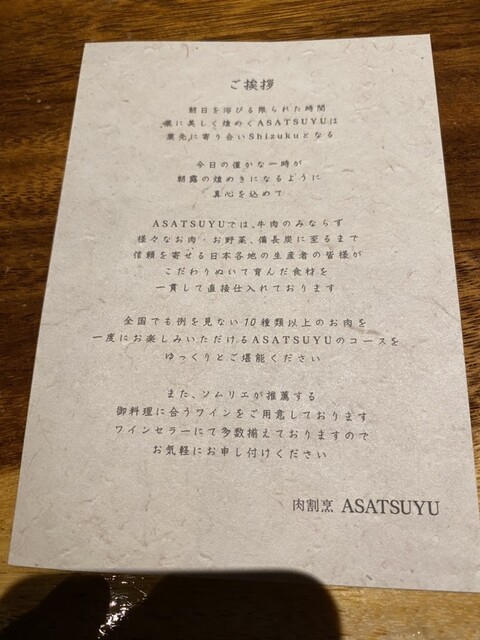 ご挨拶
朝日を浴びる限られた時間
儚に美しく煌めくASATSUYUは
葉先に寄り合いShizukuとなる
今日の僅かな一時が
朝露の煌めきになるように
真心を込めて
ASATSUYUでは、牛肉のみならず
様々なお肉・お野菜、備長炭に至るまで
信頼を寄せる日本各地の生産者の皆様が
こだわりぬいて育んだ食材を
一貫して直接仕入れております
全国でも例を見ない10種類以上のお肉を
一度にお楽しみいただけるASATSUYUのコースを
ゆっくりとご堪能ください
また、ソムリエが推薦する
御料理に合うワインをご用意しております
ワインセラーにて多数揃えておりますので
お気軽にお申し付けください
肉割烹 ASATSUYU